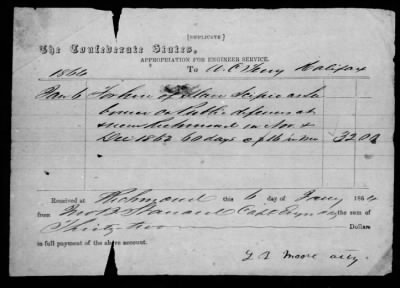 (DUPLICATE)
The Confederate States,
APPROPRIATION FOR ENGINEER SERVICE.
1864 To W. C. Halifax
Jan 6 For hire of Slave
on Public Defences at
near Richmond in Nov &
Dec 1863 60 days @ 32.00
Received at Richmond this 6 day of Jany 1864
from Capt Eng the sum of
Thirty two Dollars
in full payment of the above account.
Moore atty.